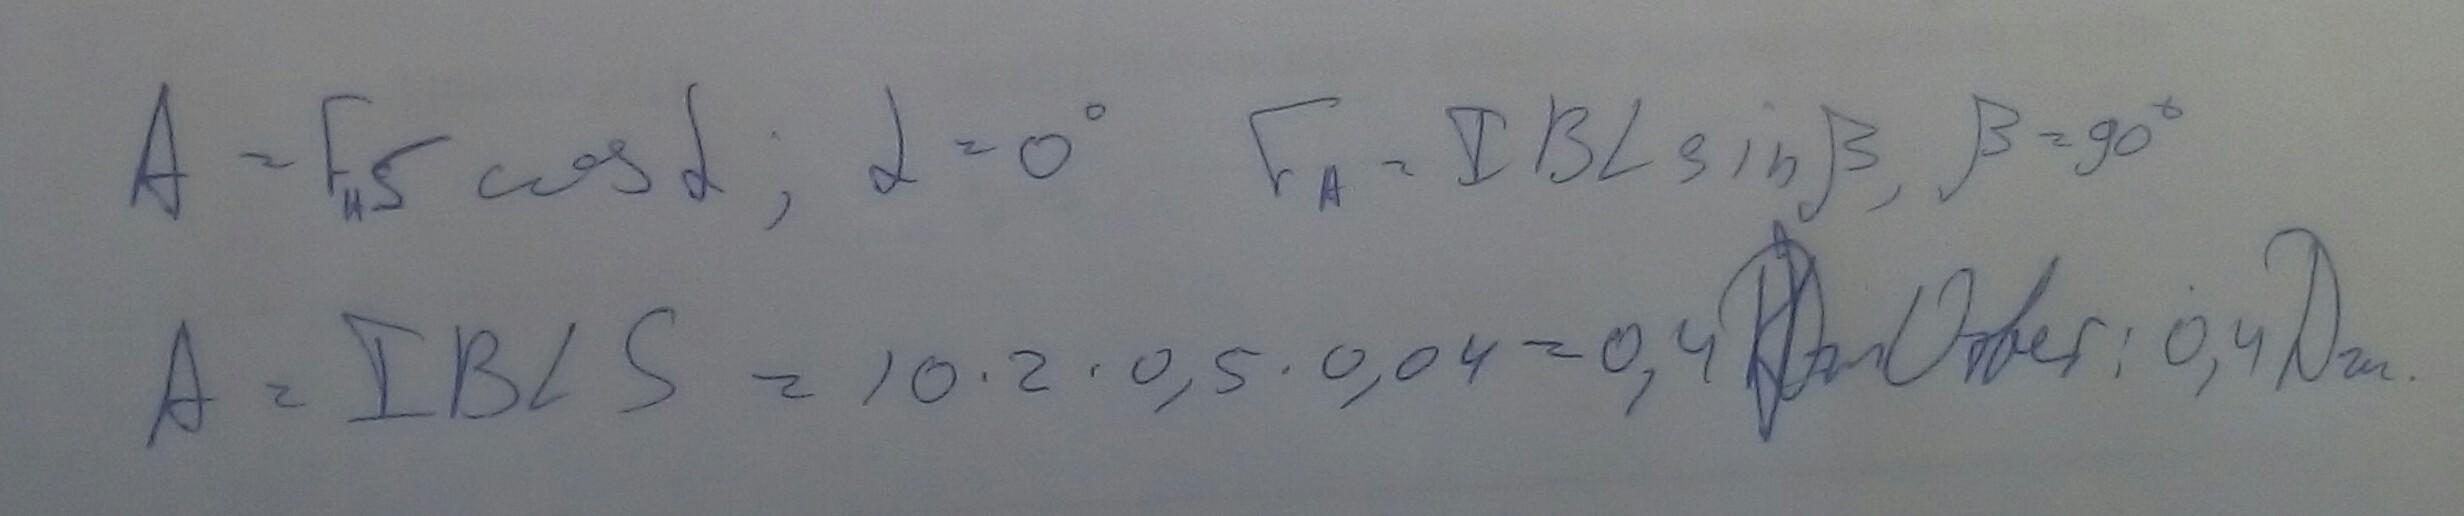 A = Fₐ S cos α; α = 0° Fₐ = IBL sin β, β = 90°
A = IBLS = 10 · 2 · 0,5 · 0,04 = 0,4 Дж Ответ: 0,4 Дж.